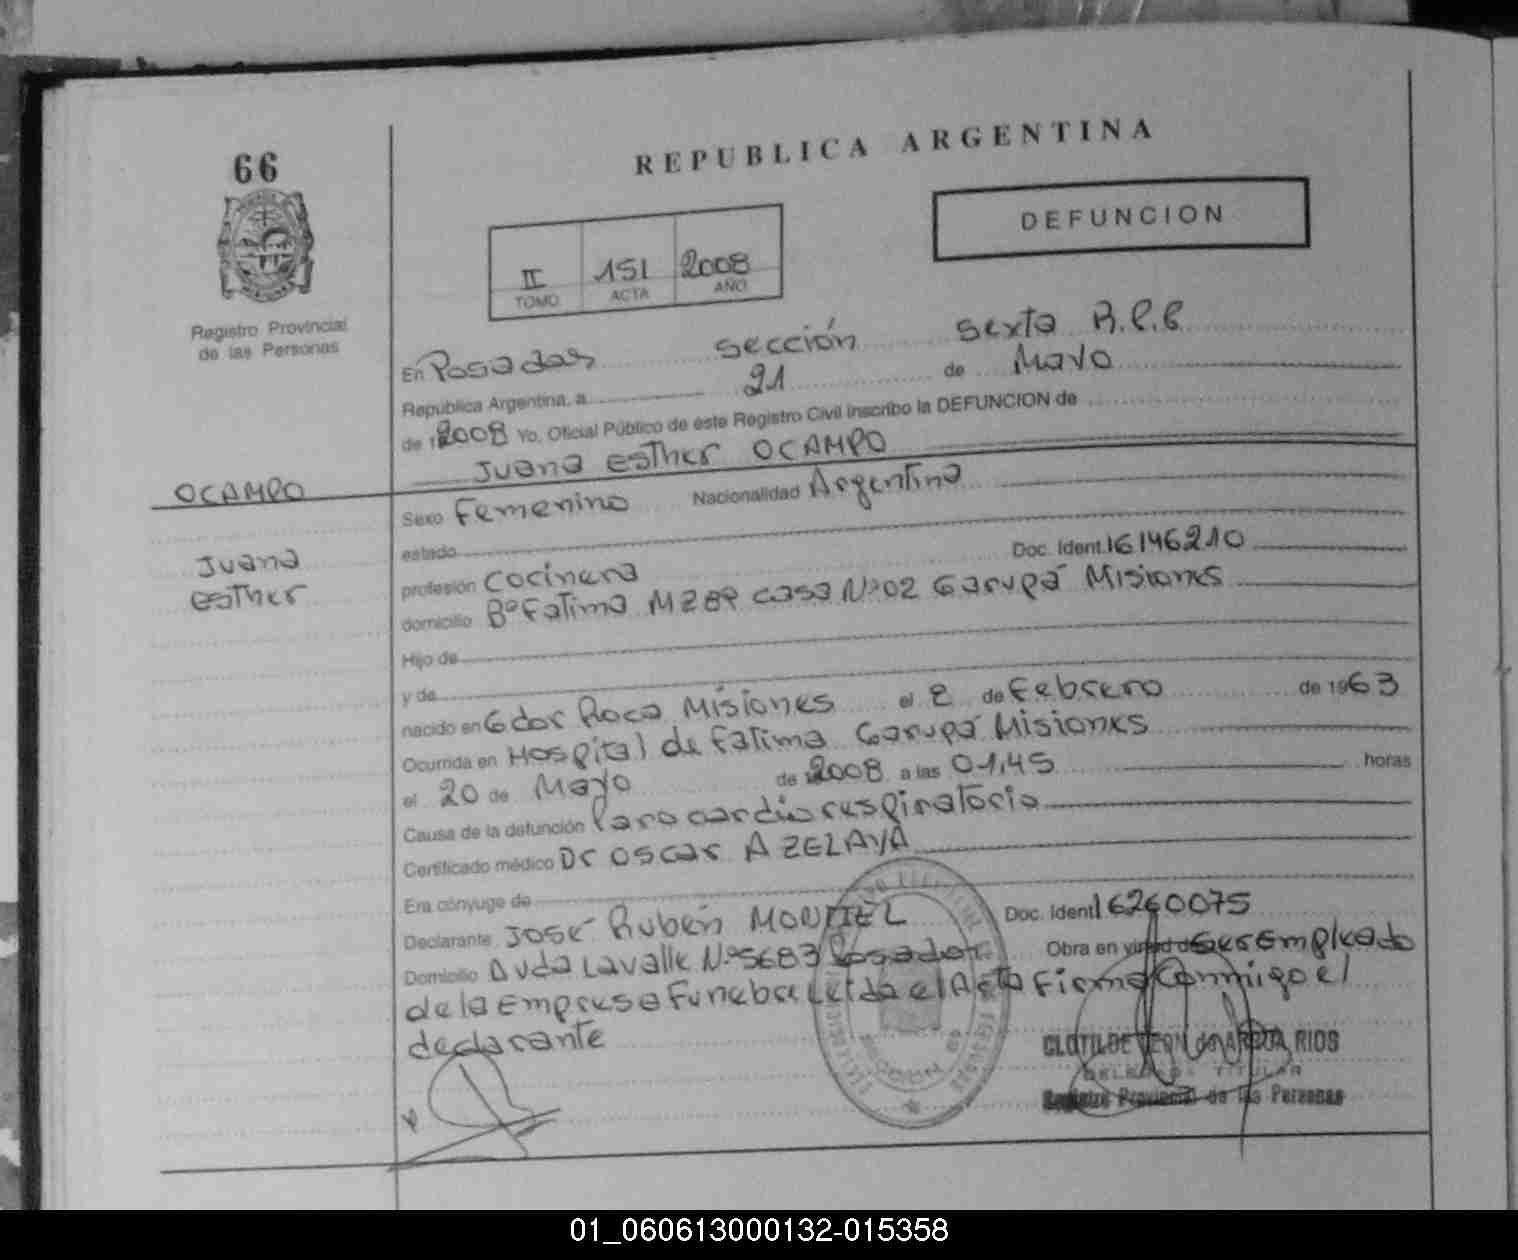 66
REPUBLICA ARGENTINA
DEFUNCION
II 151 2008
TOMO ACTA AÑO
Registro Provincial
de las Personas
En Posadas sección sexta R.P.P
República Argentina, a 21 de Mayo
de 2008 Yo, Oficial Público de este Registro Civil inscribo la DEFUNCION de
Juana Esther OCAMPO
OCAMPO
Juana
Esther
Sexo Femenino Nacionalidad Argentina
estado
Doc. Ident. 16146210
profesión Cocinera
domicilio Bº Fatima MZ 89 casa Nº 02 Garupá Misiones
Hijo de
y de
nacido en Gdor Roca Misiones el 2 de Febrero de 1963
Ocurrida en Hospital de Fatima Garupá Misiones
el 20 de Mayo de 2008 a las 01,45 horas
Causa de la defunción Paro cardio respiratorio
Certificado médico Dr Oscar A ZELAYA
Era cónyuge de
Declarante José Rubén MONTIEL Doc. Ident 16260075
Domicilio Avda Lavalle Nº 5683 Posadas Obra en virtud de ser Empleado
de la Empresa Funebre Leida el Acta Firma Conmigo el
declarante
CLOTILDE RIOS
DELEGADA TITULAR
Registro Provincial de las Personas
01_060613000132-015358